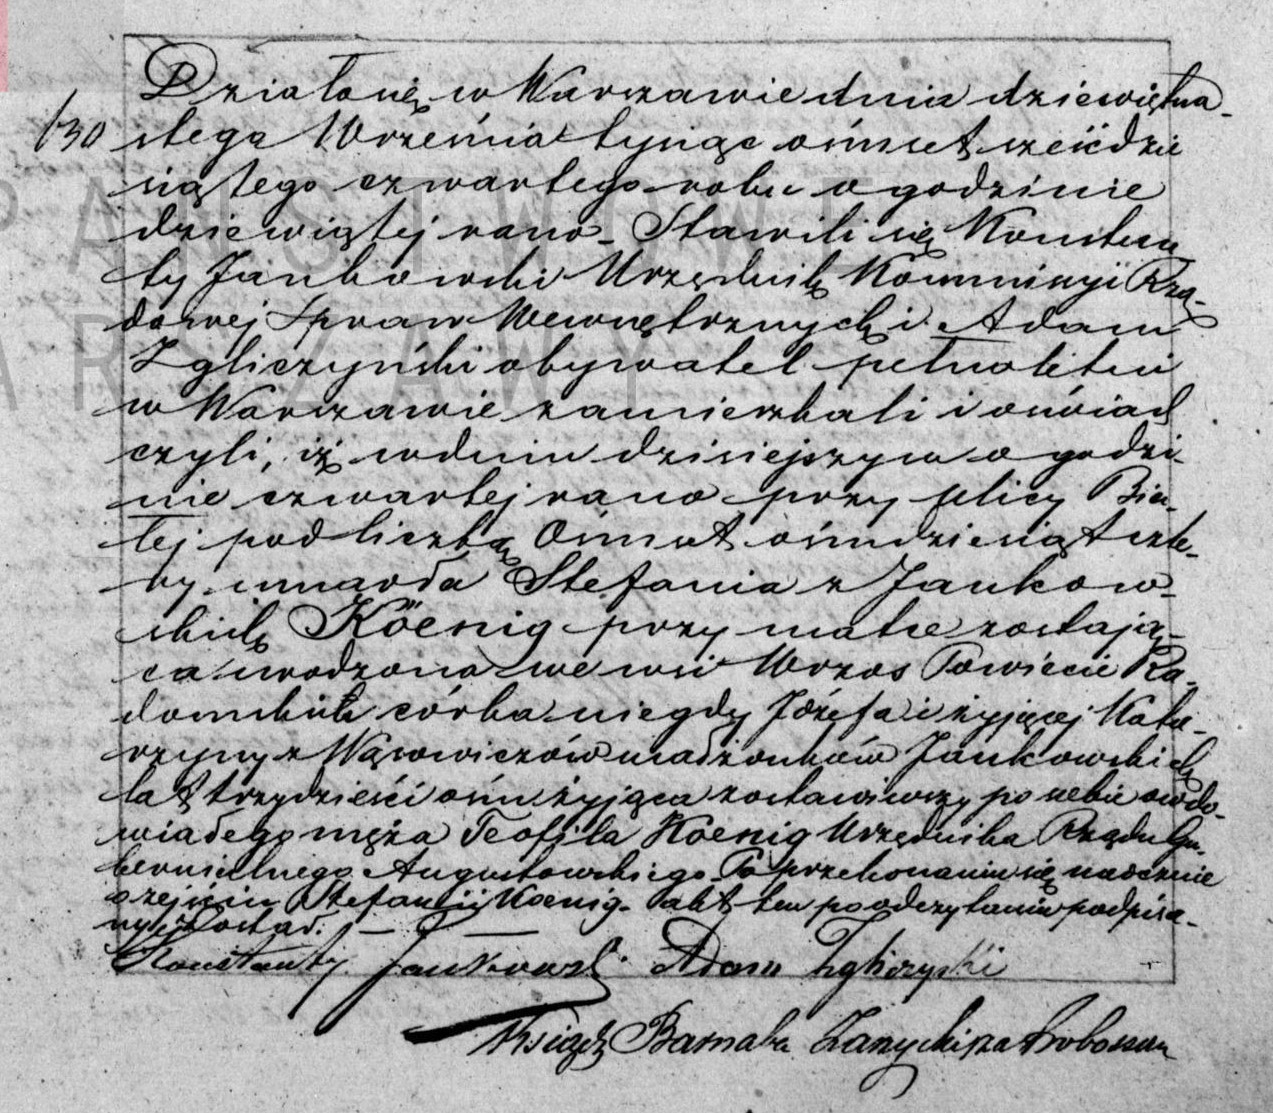 130
Działo się w Warszawie dnia dziewiętna-
stego Września tysiąc ośmset sześćdzie
siątego czwartego roku o godzinie
dziewiątej rano. Stawili się Konstan
ty Jankowski Urzędnik Kommisyi Rzą-
dowej Spraw Wewnętrznych i Adam
Zgliczyński obywatel pełnoletni
w Warszawie zamieszkali i oświad
czyli, iż w dniu dzisiejszym o godzi-
nie czwartej rano przy ulicy Bia-
łej pod liczbą Ośmset ośmdziesiąt czte-
ry umarła Stefania z Jankow-
skich Köenig przy matce zostają-
ca urodzona we wsi Wrzos Powiecie Ra-
domskim córka niegdy Józefa i żyjącej Kata-
rzyny z Wąsowiczów małżonków Jankowskich
lat trzydzieści ośm żyjąca zostawiwszy po sobie owdo-
wiałego męża Teofila Koenig Urzędnika Rządu Gu-
bernialnego Augustowskiego. Po przekonaniu się naocznie
o zejściu Stefanii Koenig. akt ten po odczytaniu podpisa-
ny został.
Konstanty Jankowski Adam Zgliczyński
Ksiądz Barnaba
PAŃSTWOWE
WARSZAWY